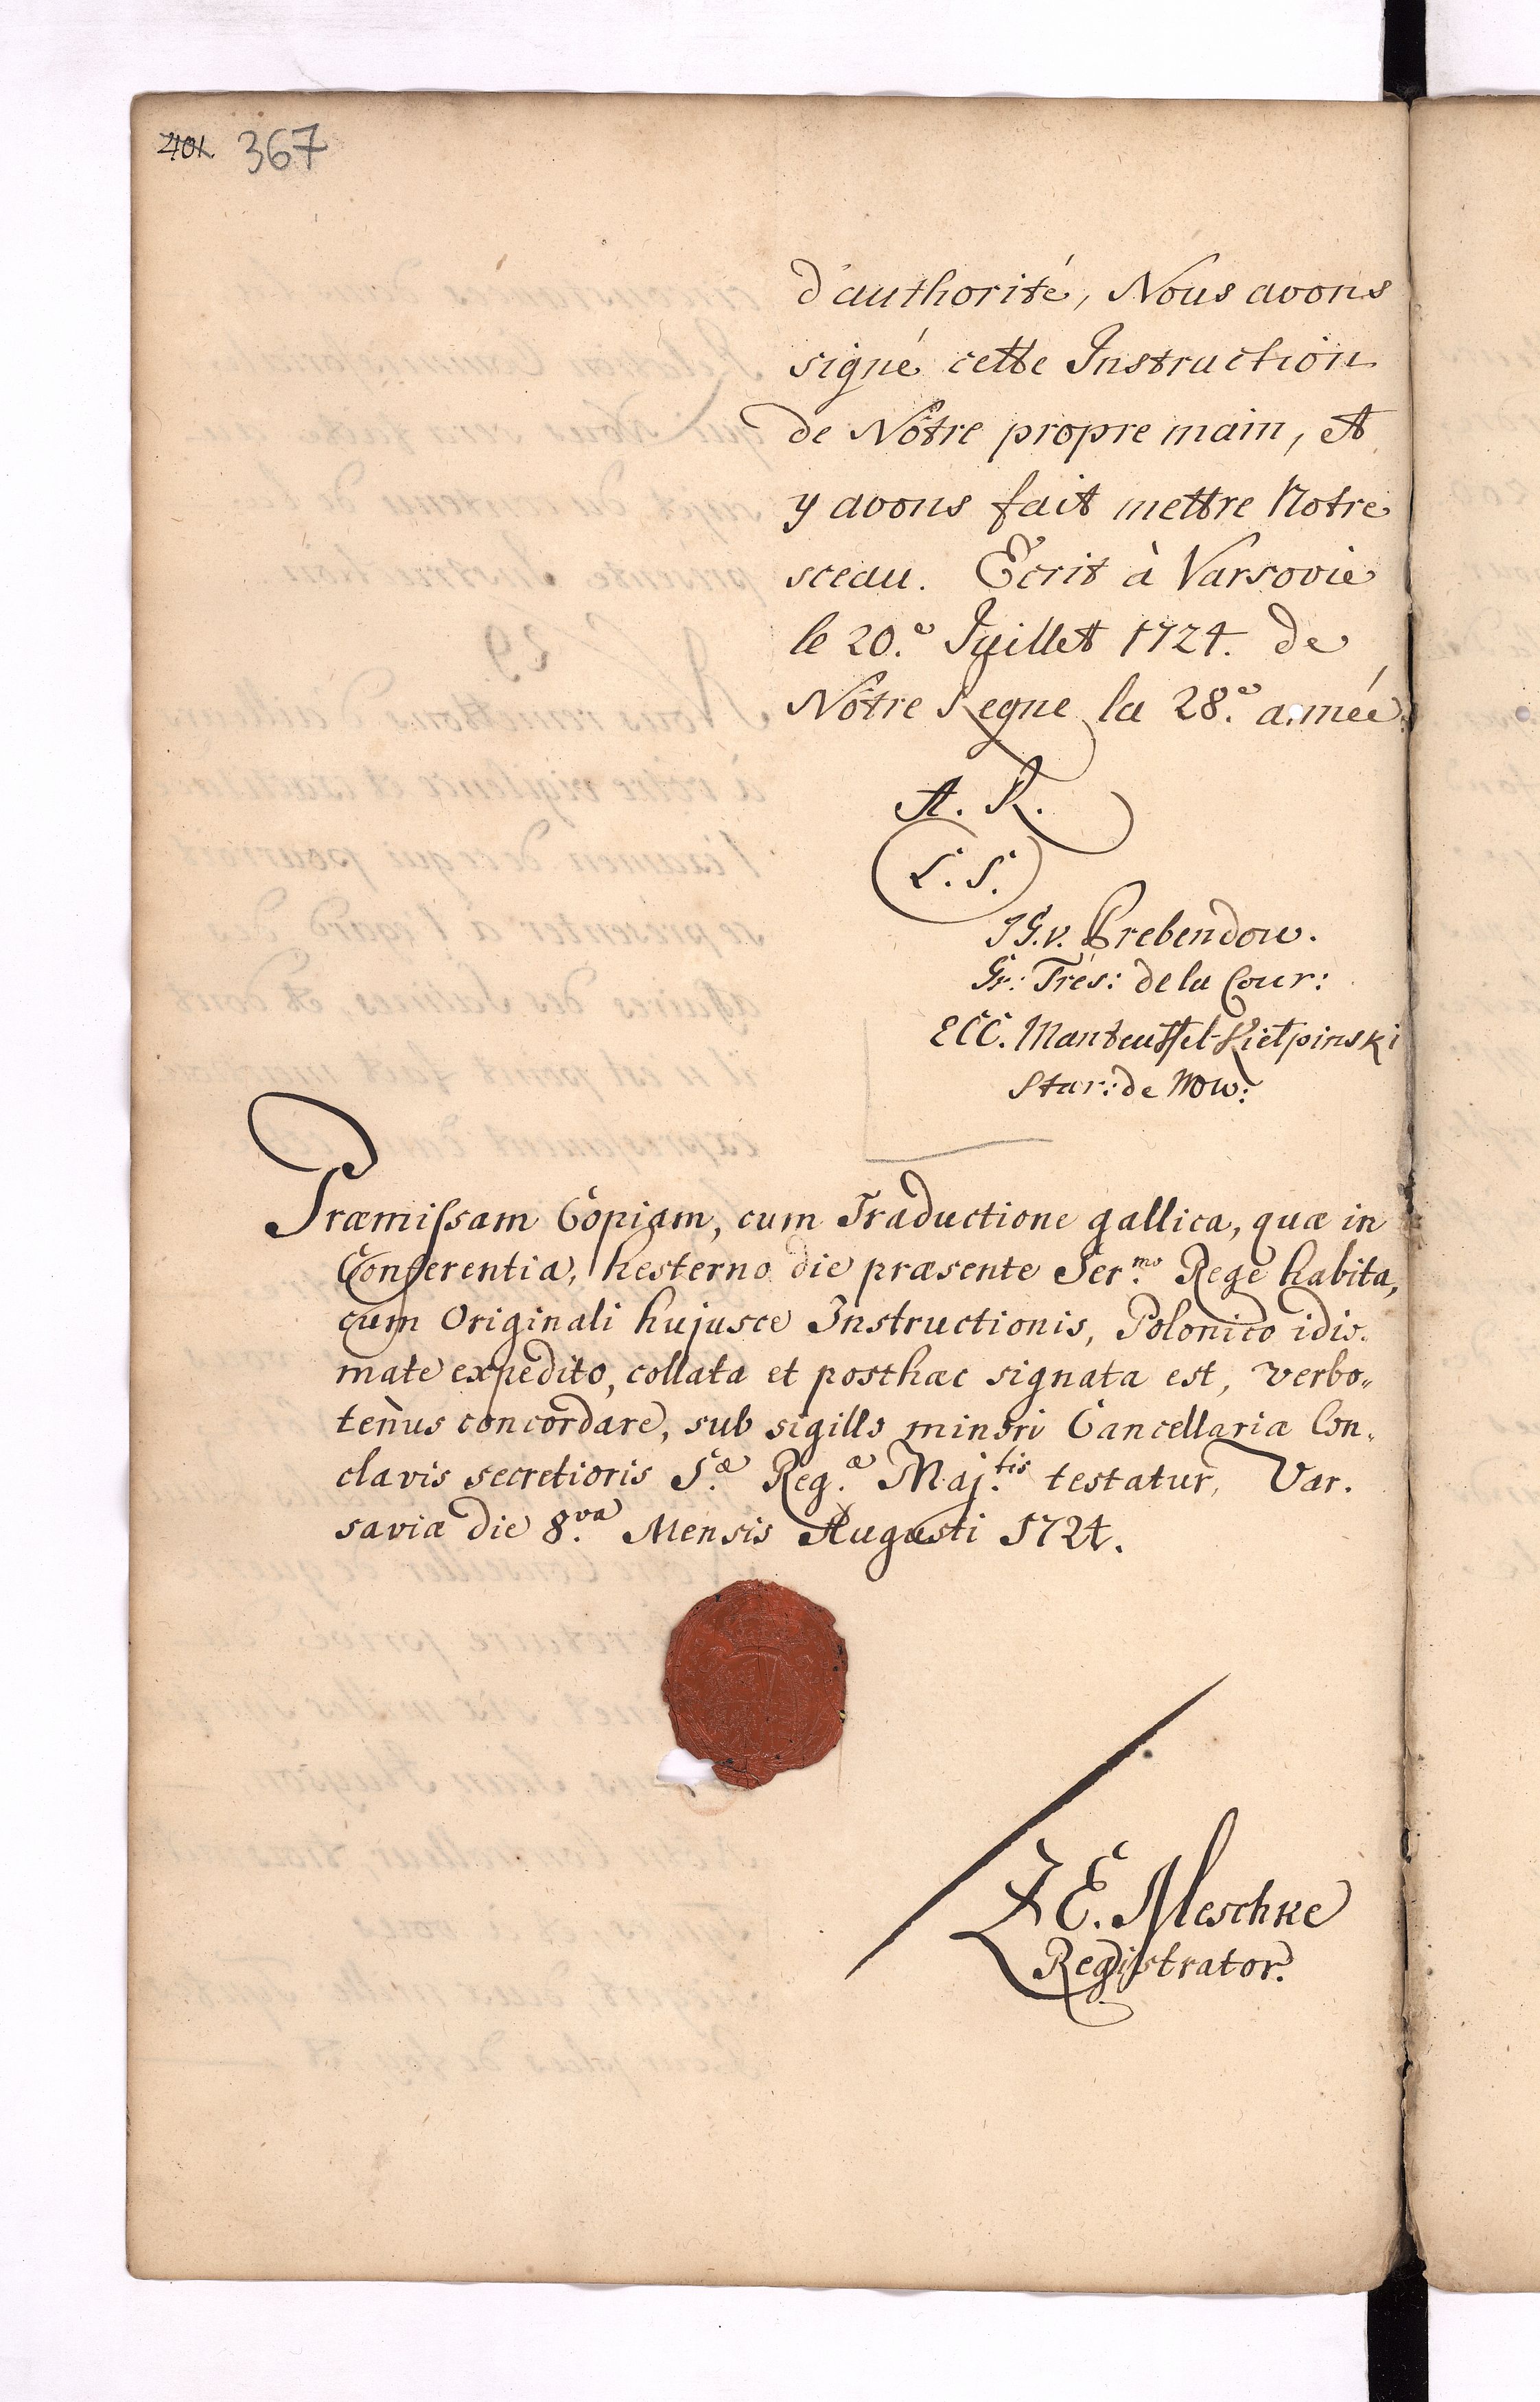 401. 367
d'authorité, Nous avons
signé cette Instruction
de Nôtre propre main, et
y avons fait mettre Notre
sceau. Ecrit à Varsovie
le 20.e Juillet 1724. de
Nôtre Regne la 28.e année.
A. R.
L. S.
JG. v. Prebendow.
Gr: Trés: de la Cour:
ECC. Manteuffel-Kielpinski
Star: de Now:
Præmissam Copiam, cum Traductione gallica, quæ in
Conferentia, hesterno die præsente Ser.mo Rege habita,
cum Originali hujusce Instructionis, Polonico idio-
mate expedito, collata et posthac signata est, verbo-
tenùs concordare, sub sigillo minori Cancellariæ Con-
clavis secretioris S.æ Reg.æ Maj.tis testatur, Var-
saviæ die 8.va Mensis Augusti 1724.
E. Meschke
Registrator.